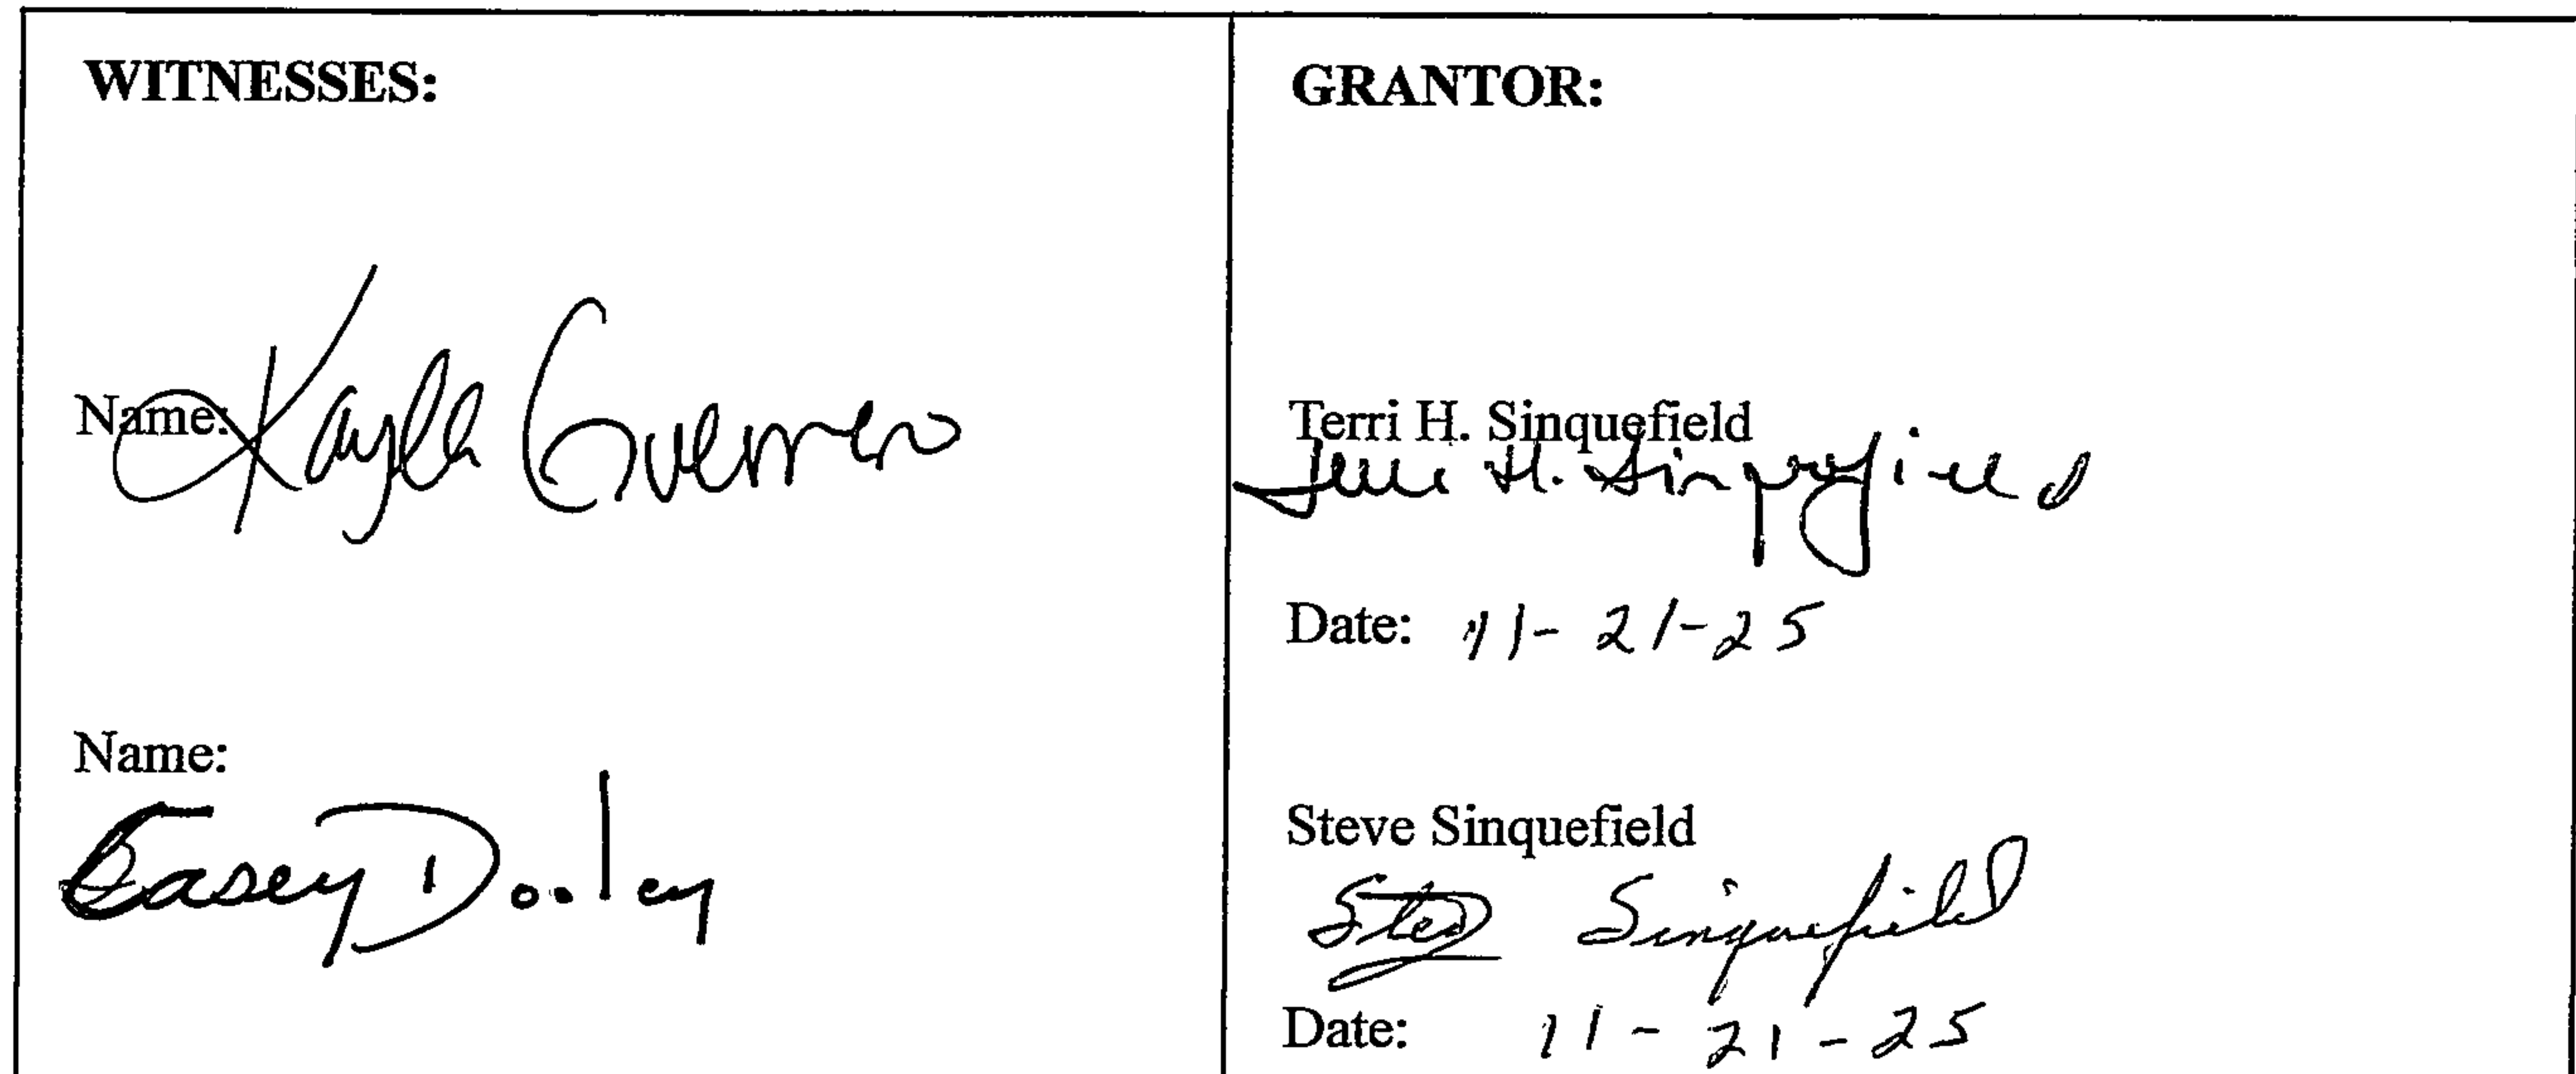 WITNESSES:
Name: Kayla Guerrero
Name:
Casey Dooley
GRANTOR:
Terri H. Sinquefield
Terri H. Sinquefield
Date: 11-21-25
Steve Sinquefield
Steve Sinquefield
Date: 11-21-25